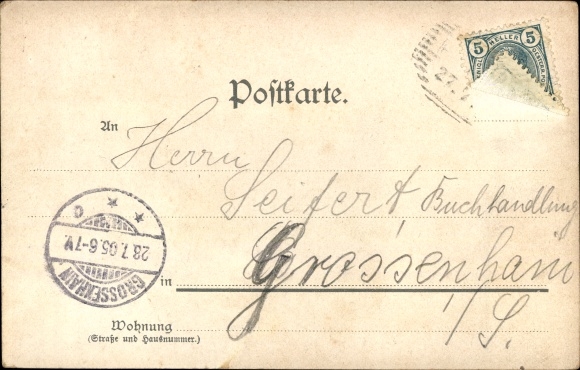 5 HELLER 5
27.
Postkarte.
An
Herrn
Seifert Buchhandlung
in Grossenhain
i/S.
Wohnung
(Straße und Hausnummer.)
GROSSENHAIN
28.7.05.6-7V